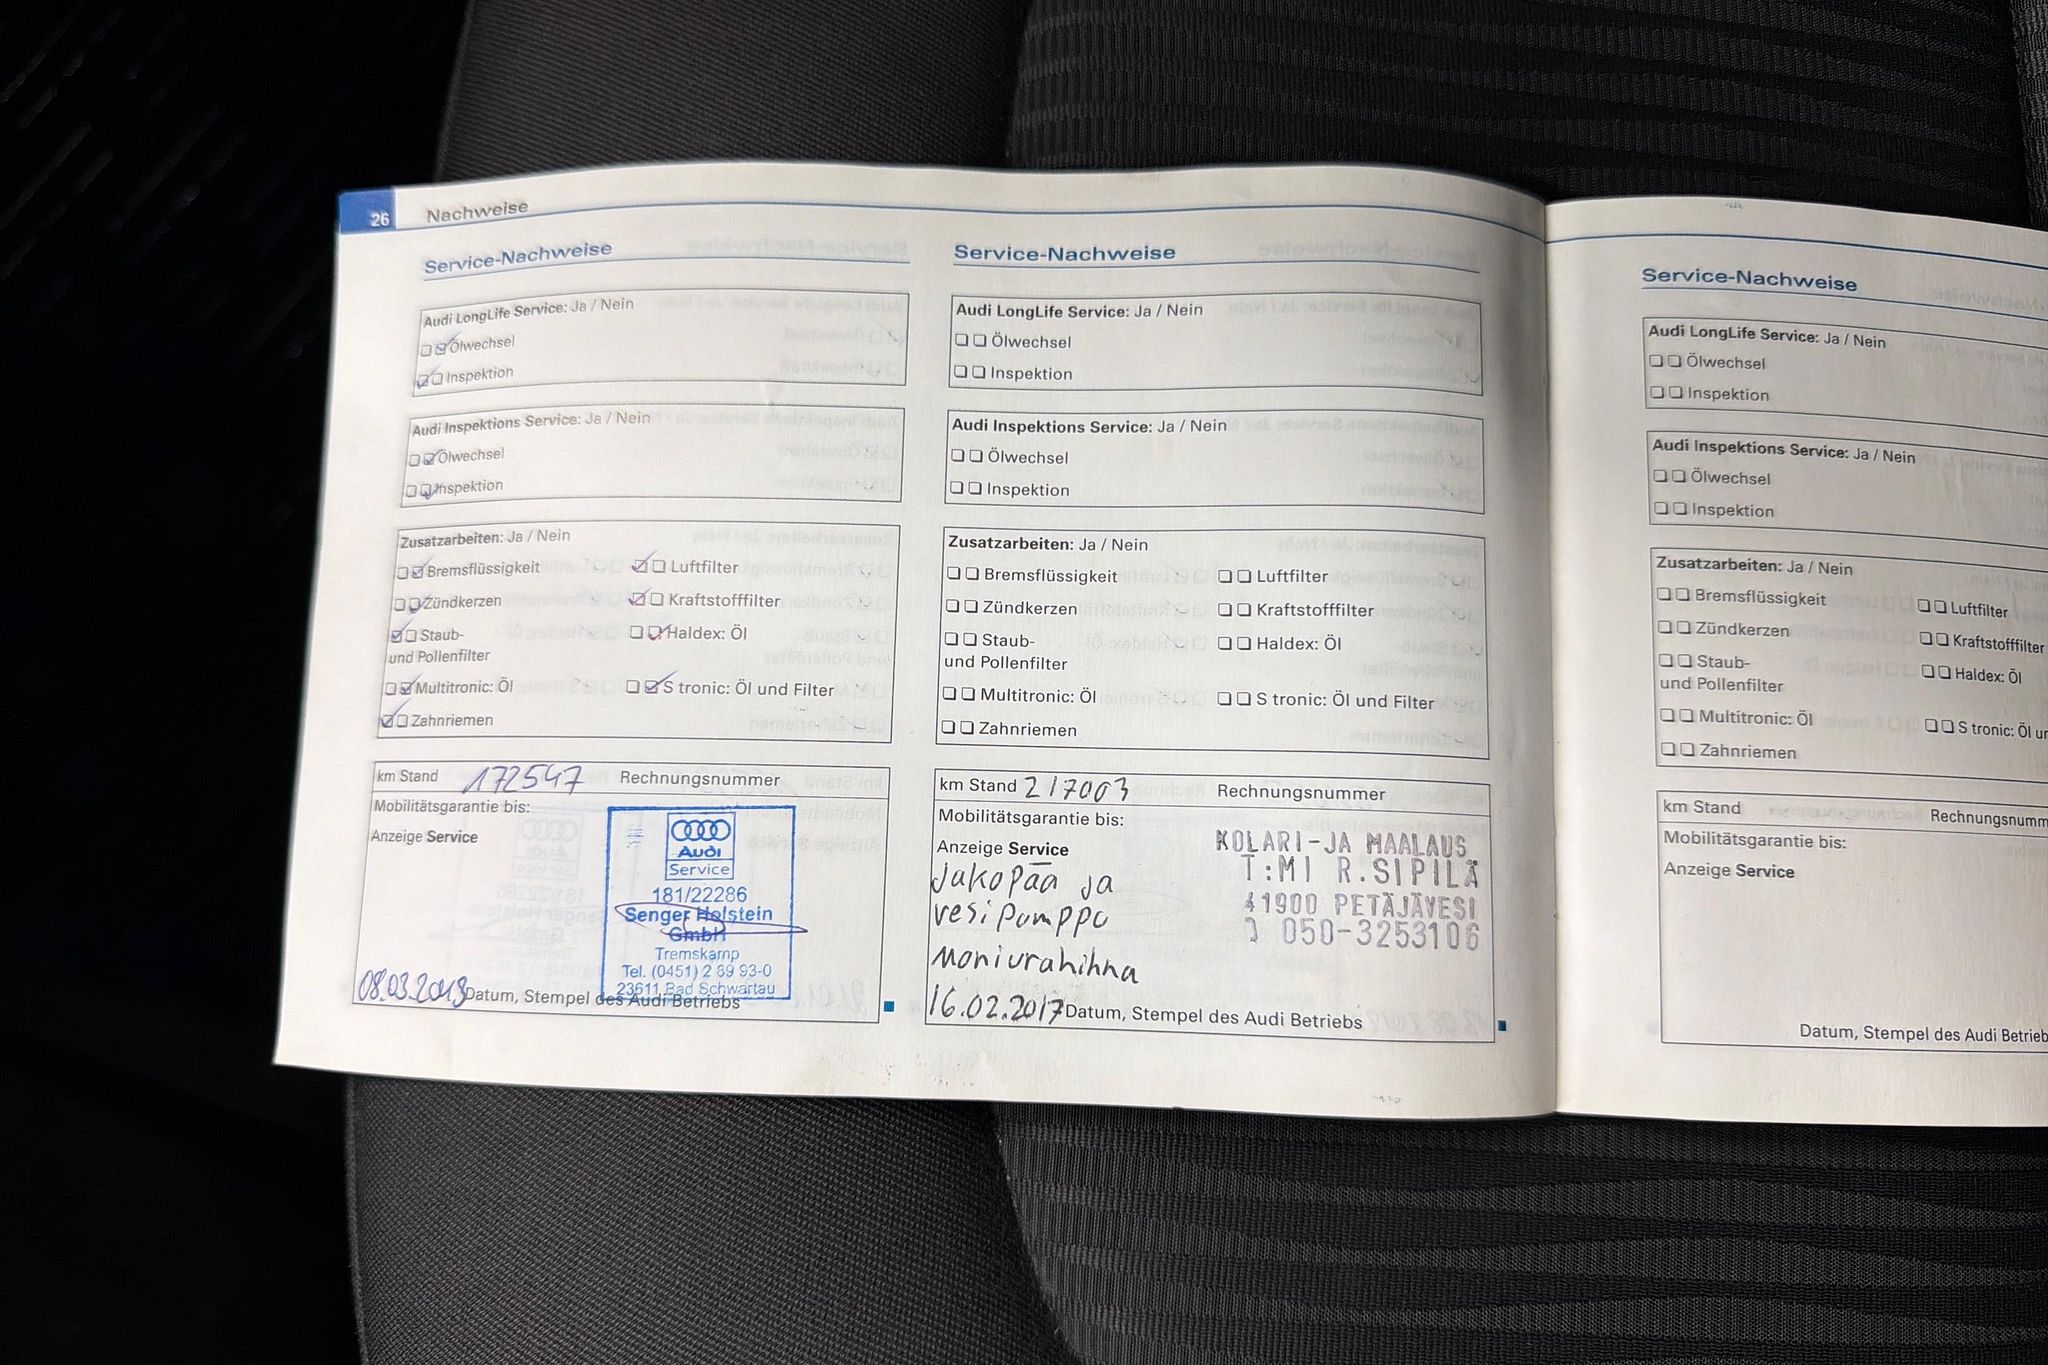 26 Nachweise
Service-Nachweise
Audi LongLife Service: Ja / Nein
Ölwechsel
Inspektion
Audi Inspektions Service: Ja / Nein
Ölwechsel
Inspektion
Zusatzarbeiten: Ja / Nein
Bremsflüssigkeit Luftfilter
Zündkerzen Kraftstofffilter
Staub- Haldex: Öl
und Pollenfilter
Multitronic: Öl S tronic: Öl und Filter
Zahnriemen
km Stand 172547 Rechnungsnummer
Mobilitätsgarantie bis:
Anzeige Service
Audi
Service
181/22286
Senger Holstein
GmbH
Tremskamp
Tel. (0451) 2 89 93-0
23611 Bad Schwartau
08.03.2013 Datum, Stempel des Audi Betriebs
Service-Nachweise
Audi LongLife Service: Ja / Nein
Ölwechsel
Inspektion
Audi Inspektions Service: Ja / Nein
Ölwechsel
Inspektion
Zusatzarbeiten: Ja / Nein
Bremsflüssigkeit Luftfilter
Zündkerzen Kraftstofffilter
Staub- Haldex: Öl
und Pollenfilter
Multitronic: Öl S tronic: Öl und Filter
Zahnriemen
km Stand 217003 Rechnungsnummer
Mobilitätsgarantie bis:
Anzeige Service
KOLARI-JA MAALAUS
T:MI R.SIPILÄ
41900 PETÄJÄVESI
050-3253106
Jakopää ja
vesipumppu
moniurahihna
16.02.2017 Datum, Stempel des Audi Betriebs
Service-Nachweise
Audi LongLife Service: Ja / Nein
Ölwechsel
Inspektion
Audi Inspektions Service: Ja / Nein
Ölwechsel
Inspektion
Zusatzarbeiten: Ja / Nein
Bremsflüssigkeit Luftfilter
Zündkerzen Kraftstofffilter
Staub- Haldex: Öl
und Pollenfilter
Multitronic: Öl S tronic: Öl
Zahnriemen
km Stand Rechnungsnumm
Mobilitätsgarantie bis:
Anzeige Service
Datum, Stempel des Audi Betrieb